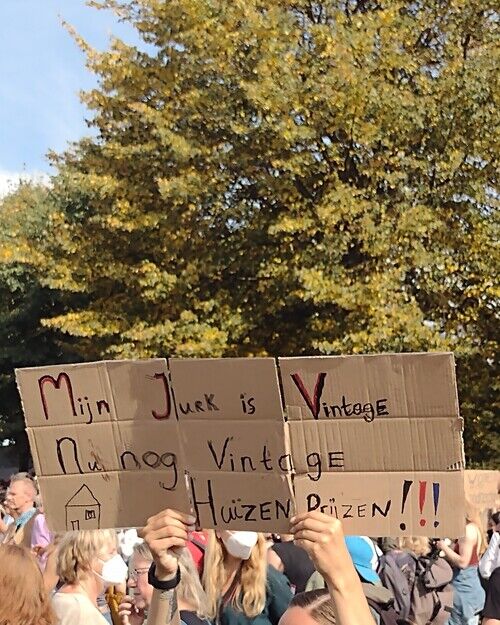 Mijn Jurk is Vintage
nu nog Vintage
Huizen Prijzen!!!